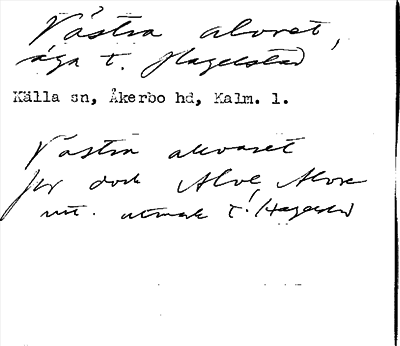 Västra alvret,
äga t. Hagelstad
Källa sn, Åkerbo hd, Kalm. l.
Västra alvaret
jfr dock Alve, Alvre
utmark t. Hagelstad